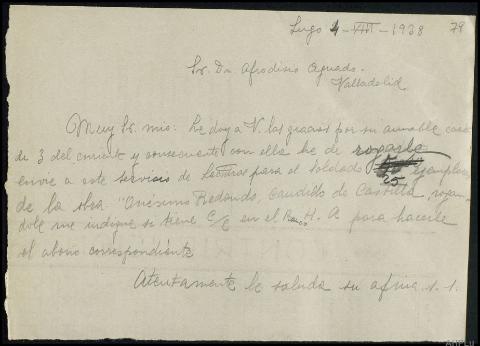 Lugo 4-VIII-1938 79
Sr. Dn Afrodisio Aguado.
Valladolid
Muy Sr. mio: Le doy a V. las gracias por su amable carta
de 3 del corrient y consecuente con ella he de rogarle
envie a este servicio de Lecturas para el Soldado 25 ejemplares
de la obra "Onésimo Redondo, Caudillo de Castilla, rogan-
dole me indique si tiene C/C en el Banco H. A. para hacerle
el abono correspondiente
Atentamente le saluda su afma. s. s.